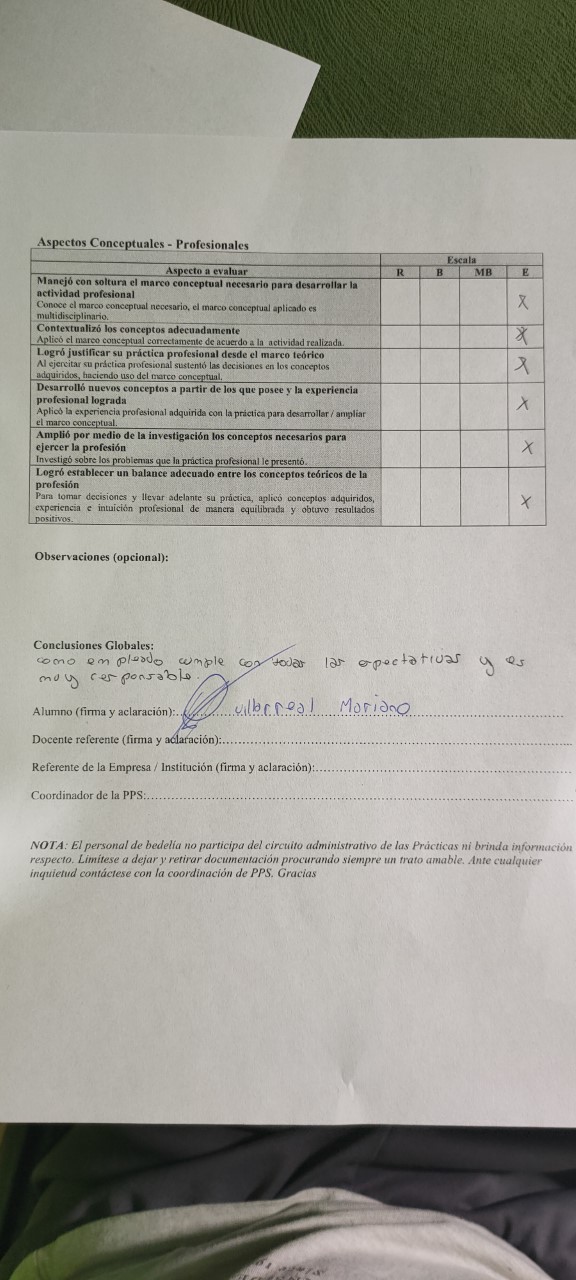 Aspectos Conceptuales - Profesionales
Escala
Aspecto a evaluar R B MB E
Manejó con soltura el marco conceptual necesario para desarrollar la
actividad profesional
Conoce el marco conceptual necesario, el marco conceptual aplicado es
multidisciplinario.
X
Contextualizó los conceptos adecuadamente
Aplicó el marco conceptual correctamente de acuerdo a la actividad realizada.
X
Logró justificar su práctica profesional desde el marco teórico
Al ejercitar su práctica profesional sustentó las decisiones en los conceptos
adquiridos, haciendo uso del marco conceptual.
X
Desarrolló nuevos conceptos a partir de los que posee y la experiencia
profesional lograda
Aplicó la experiencia profesional adquirida con la práctica para desarrollar / ampliar
el marco conceptual.
X
Amplió por medio de la investigación los conceptos necesarios para
ejercer la profesión
Investigó sobre los problemas que la práctica profesional le presentó.
X
Logró establecer un balance adecuado entre los conceptos teóricos de la
profesión
Para tomar decisiones y llevar adelante su práctica, aplicó conceptos adquiridos,
experiencia e intuición profesional de manera equilibrada y obtuvo resultados
positivos.
X
Observaciones (opcional):
Conclusiones Globales:
como empleado cumple con todas las expectativas y es
muy responsable.
Alumno (firma y aclaración):.. Villarreal Mariano
Docente referente (firma y aclaración):
Referente de la Empresa / Institución (firma y aclaración):
Coordinador de la PPS:
NOTA: El personal de bedelía no participa del circuito administrativo de las Prácticas ni brinda información
respecto. Limítese a dejar y retirar documentación procurando siempre un trato amable. Ante cualquier
inquietud contáctese con la coordinación de PPS. Gracias